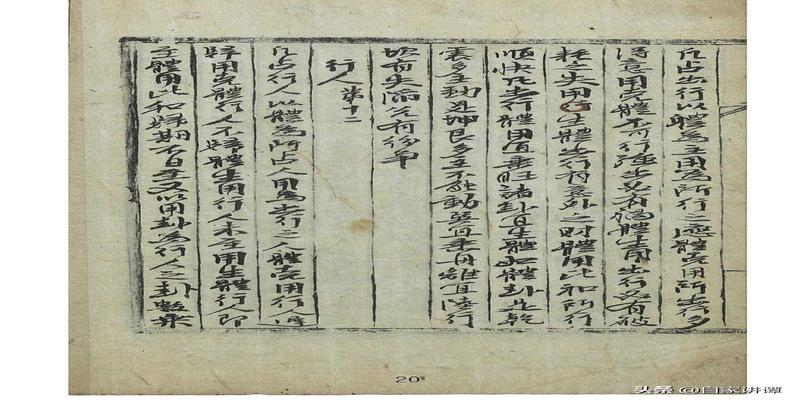 凡占出行以體為主用為所行之應體克用所出行多
得意用克體不可行強出必有禍體生用出行必有破
耗之失用生體出行有意外之財體用比和所行
順快凡出行體用宜乘旺諸卦宜生體如體卦是乾
震多主動是坤艮多主不能動巽宜乘舟離宜陸行
坎有失陷兌有紛爭
行人第十二
凡占行人以體為所占人用為出行之人體克用行人得
歸用克體行人不歸體生用行人未至用生體行人即
至體用比和歸期不日至又以用卦為行人之卦
20
头条 @自家讲谭